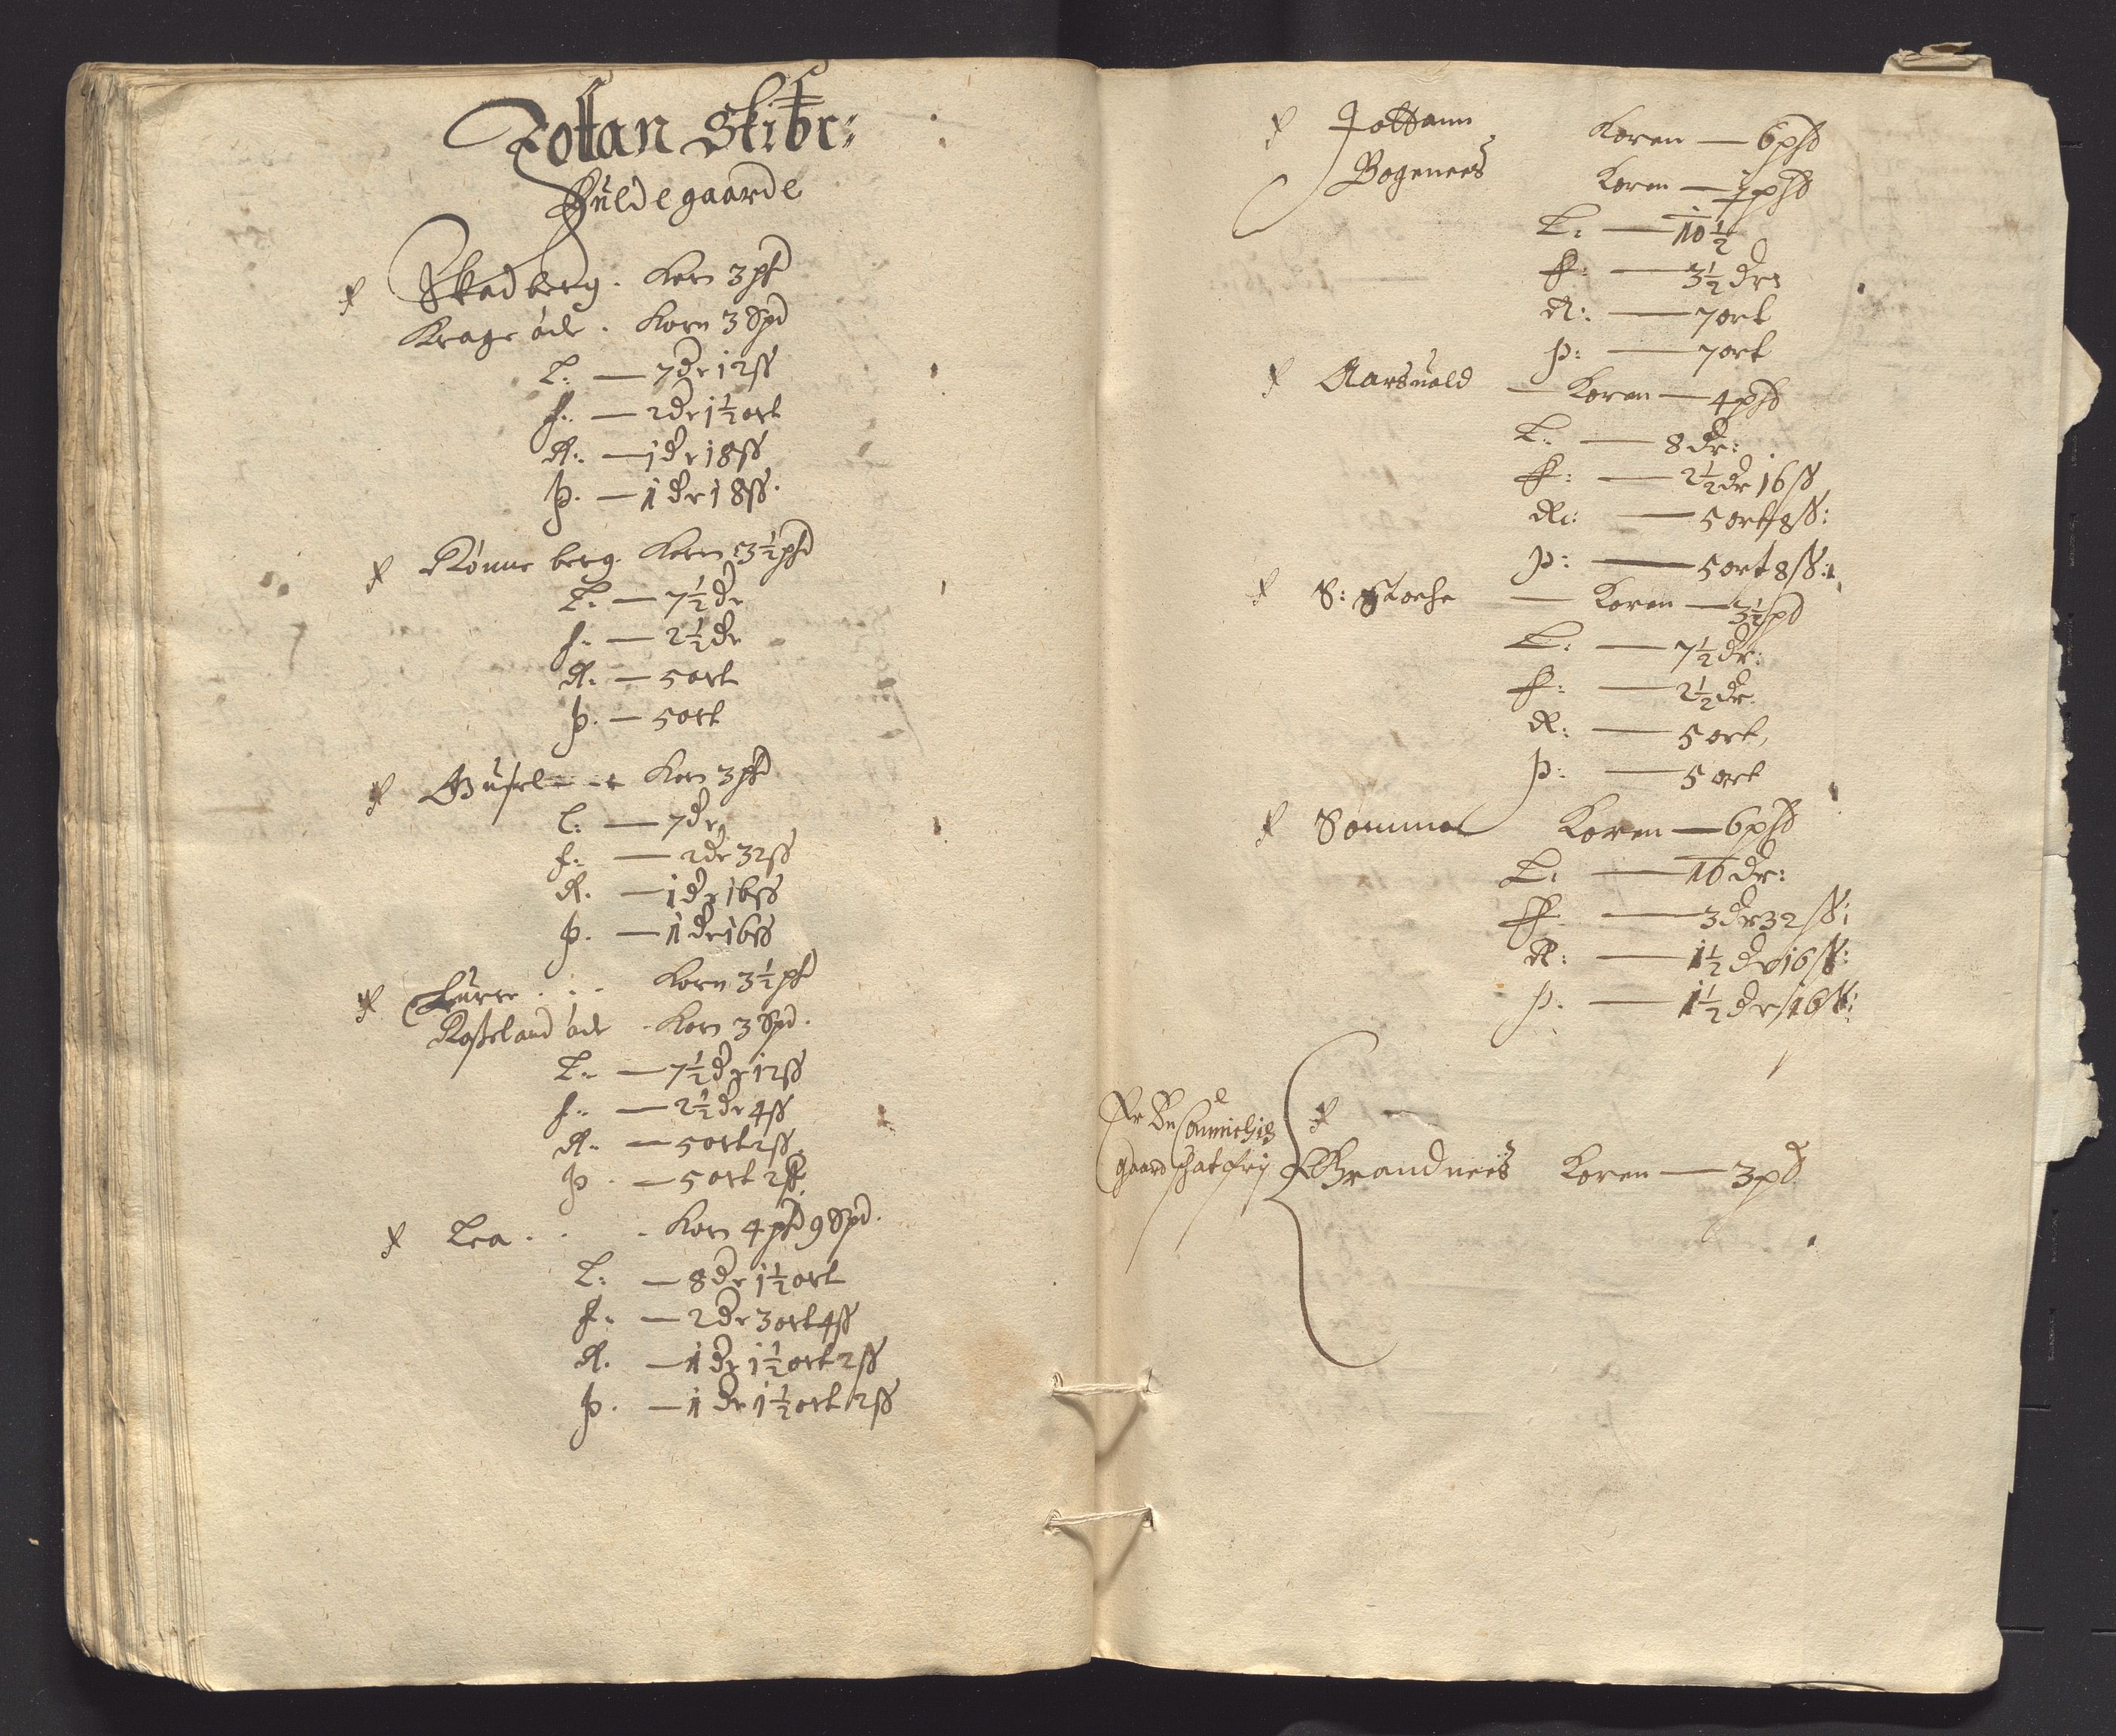 Zottan Skibr:
Fuldegaarde
Skadberg. Korn 3 pd
Krage øde. Korn 3 Spd
L: — 7 dr 12 ss
f: — 2 dr 1½ ort
R: — 1 dr 18 ss
þ. — 1 dr 18 ss.
Rønneberg. Korn 3½ pd
L: — 7½ dr
f: — 2½ dr
R: — 5 ort
þ. — 5 ort
Korn 3 pd
L: — 7 dr
f: — 2 dr 32 ss
R. — 1 dr 16 ss
þ. — 1 dr 16 ss
Korn 3½ pd
Roßeland øde - Korn 3 Spd.
L: — 7½ dr 12 ss
f: — 2½ dr 4 ss
R: — 5 ort 2 ss
þ. — 5 ort 2 ss
Lea . . . Korn 4 pd 9 Spd.
L: — 8 dr 1½ ort
f: — 2 dr 3 ort 4 ss
R. — 1 dr 1½ ort 2 ss
þ. — 1 dr 1½ ort 2 ss
Zottann Koren — 6 pd
Bogenees Koren — pd
L: — 10½
ff: — 3½ dr
R: — 7 ort
þ: — 7 ort
Aarsuold — Koren — 4 pd
L: — 8 dr:
ff: — 2½ dr 16 ss
R: — 5 ort 8 ss:
þ: — 5 ort 8 ss:
S: Stoche — Koren — 3½ pd
L: — 7½ dr:
ff: — 2½ dr.
R: — 5 ort,
þ: — 5 ort
Sømme Koren — 6 pd
L: — 10 dr:
ff: — 3 dr 32 ss:
R: — 1½ dr 16 ss:
þ. — 1½ dr 16 ss:
Er En
gaard schatfrij Brandnees Koren — 3 pd